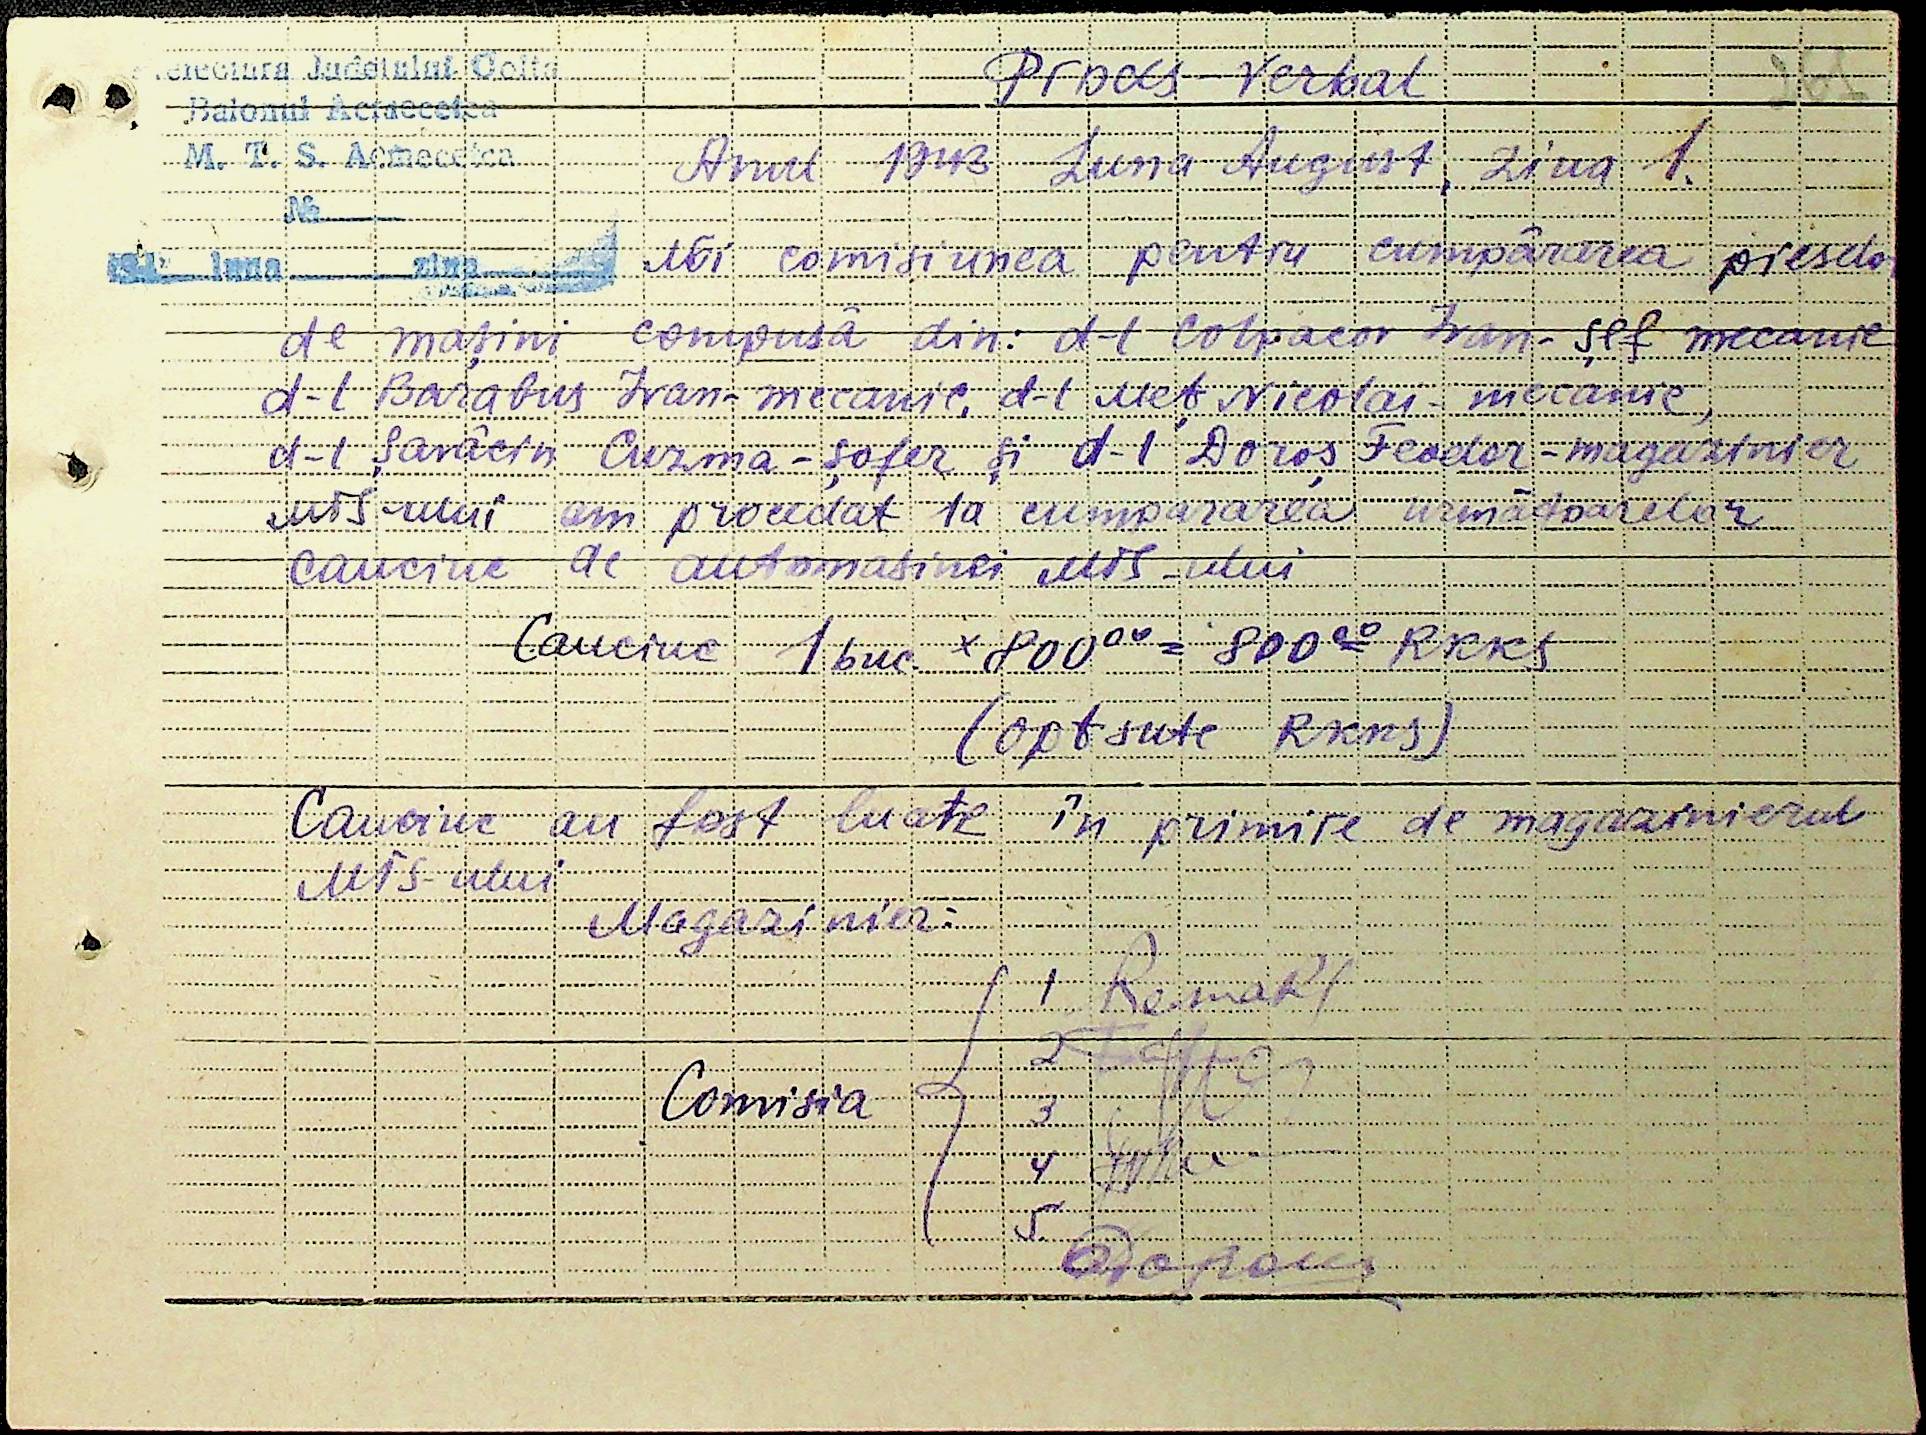 Prefectura Județului Golta
Raionul Acmecetca
M. T. S. Acmecetca
№
194 luna ziua
Proces-Verbal
Anul 1943 Luna August, ziua 1.
Nói comisiunea pentru cumpârarea pieselor
de mașini compusâ din: d-l Colpacov Ivan- șef mecanic
d-l Barabus Ivan- mecanic, d-l Meț Nicolai- mecanic,
d-l Șarâcin Cuzma - șofer și d-l Doroș Feodor - magazinier
MTS-ului am procedat la cumpararea urmãtoarelor
cauciuc de automașinei MTS-ului
Cauciuc 1 buc. × 800⁰⁰ = 800⁰⁰ RKKS
(opt sute RKKS)
Cauciuc au fost luate în primire de magazinierul
MTS-ului
Magazinier:
Comisia
1
2
3
4
5.
Дорош